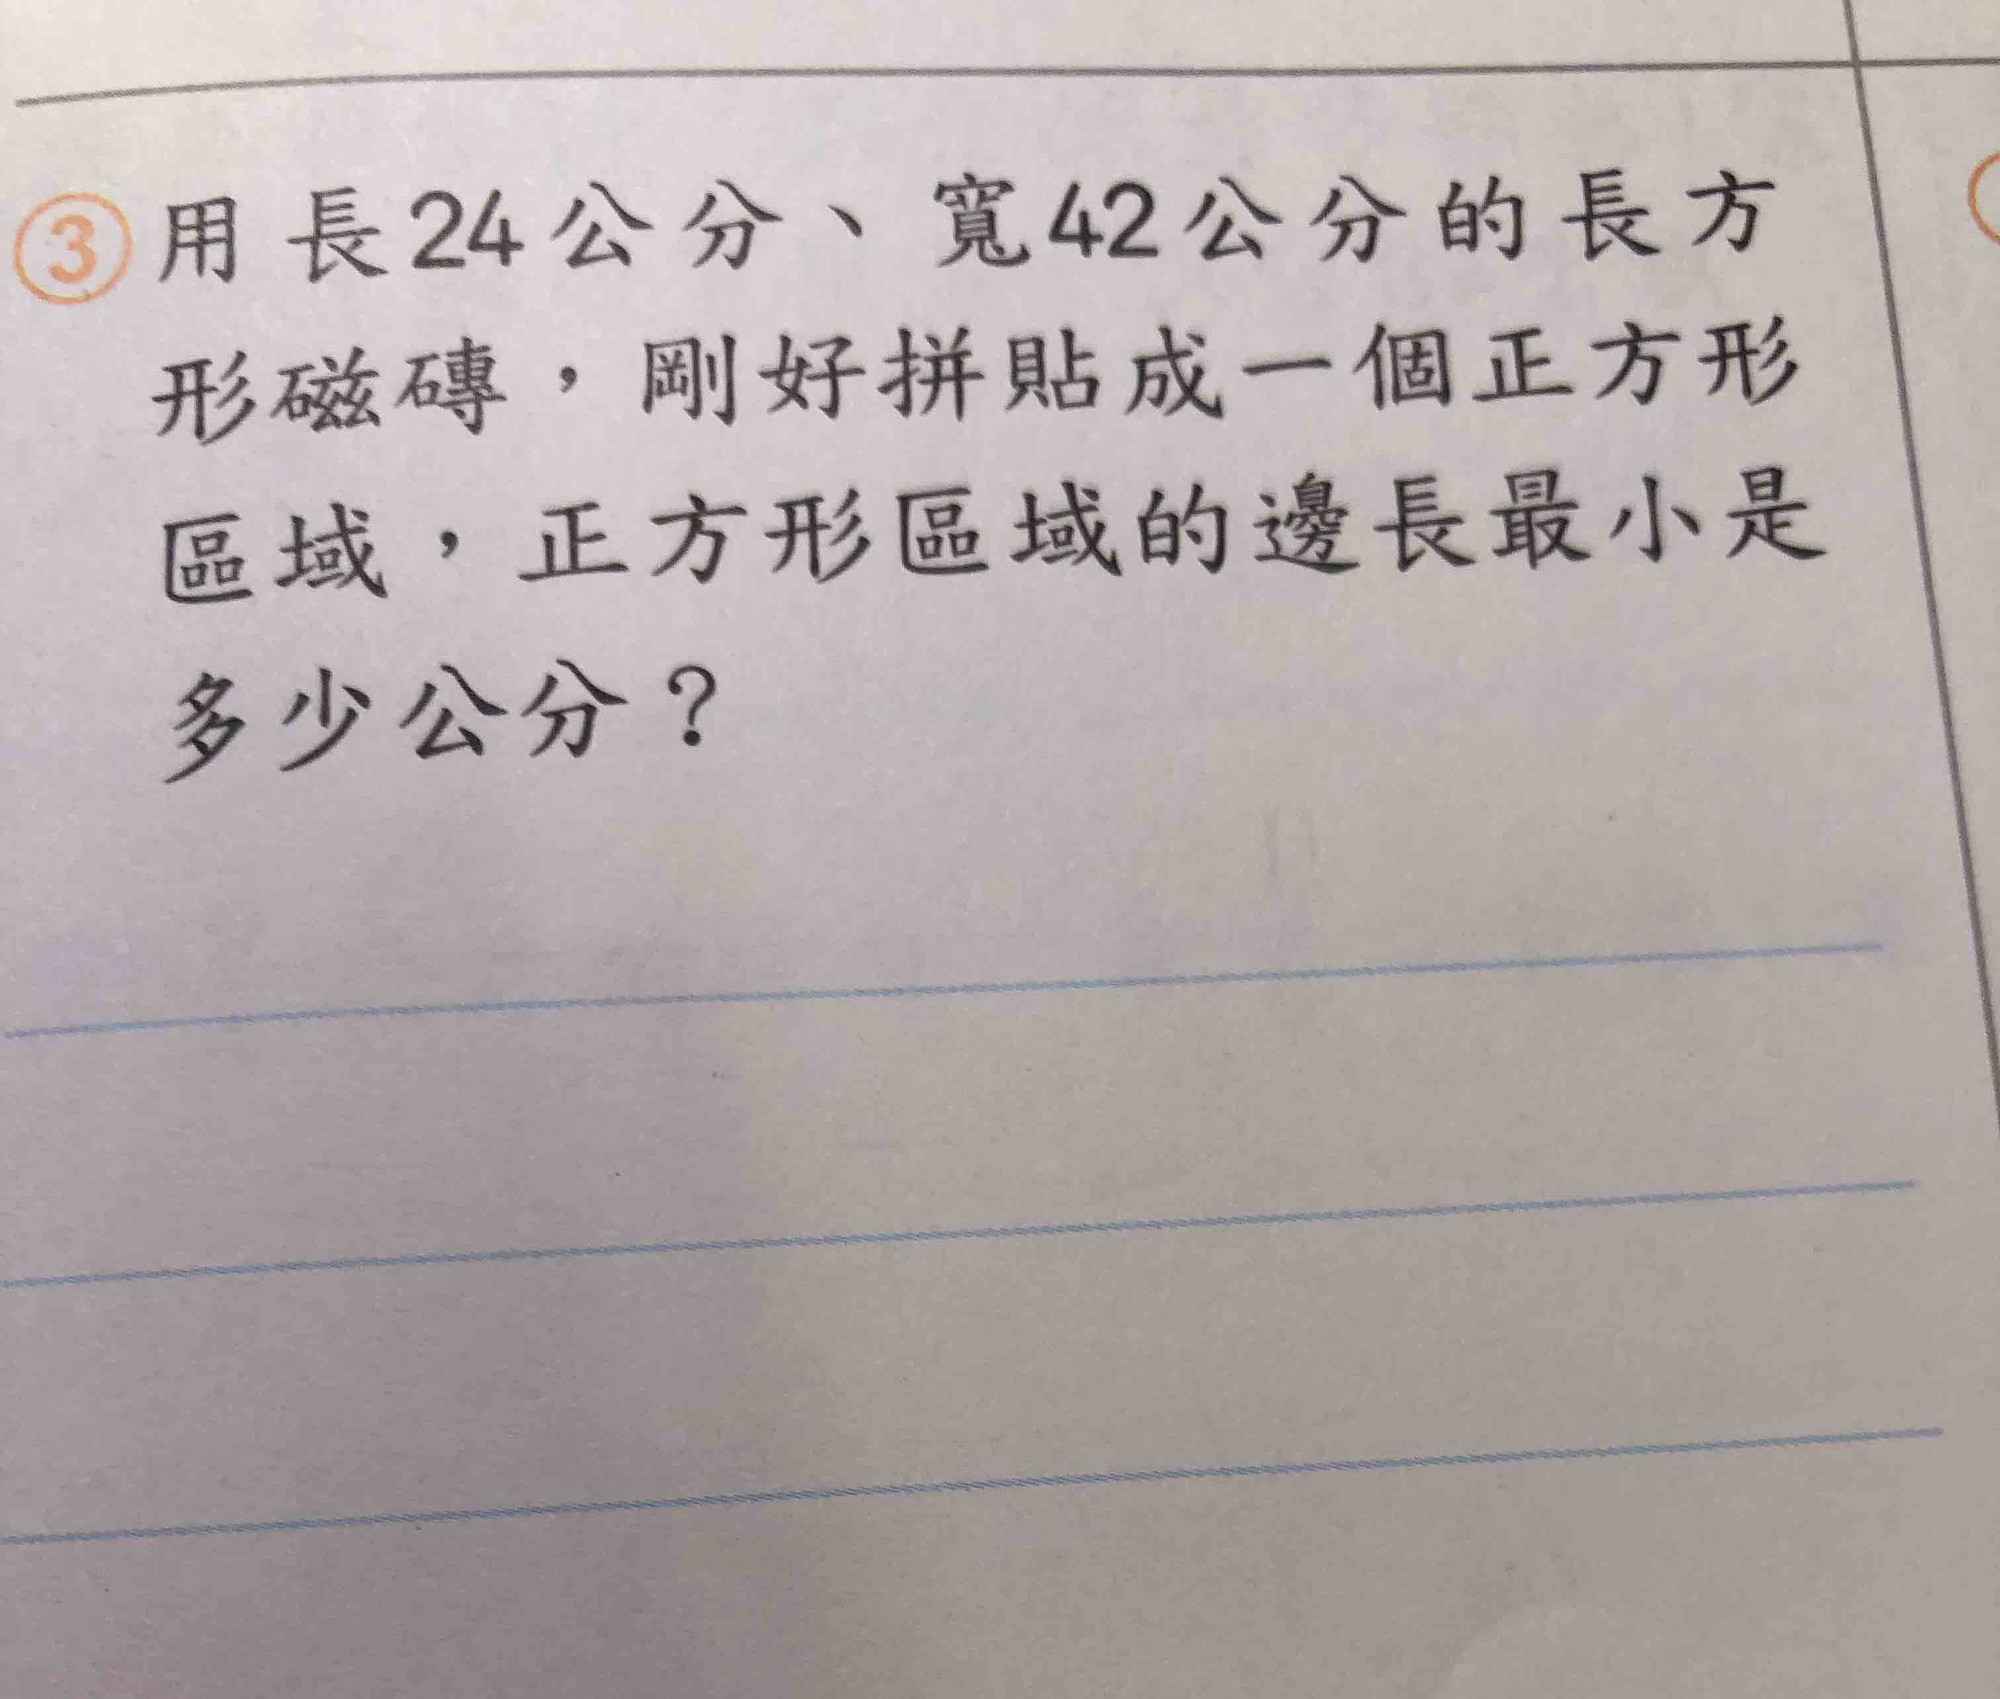 ③用長24公分、寬42公分的長方
形磁磚，剛好拼貼成一個正方形
區域，正方形區域的邊長最小是
多少公分？